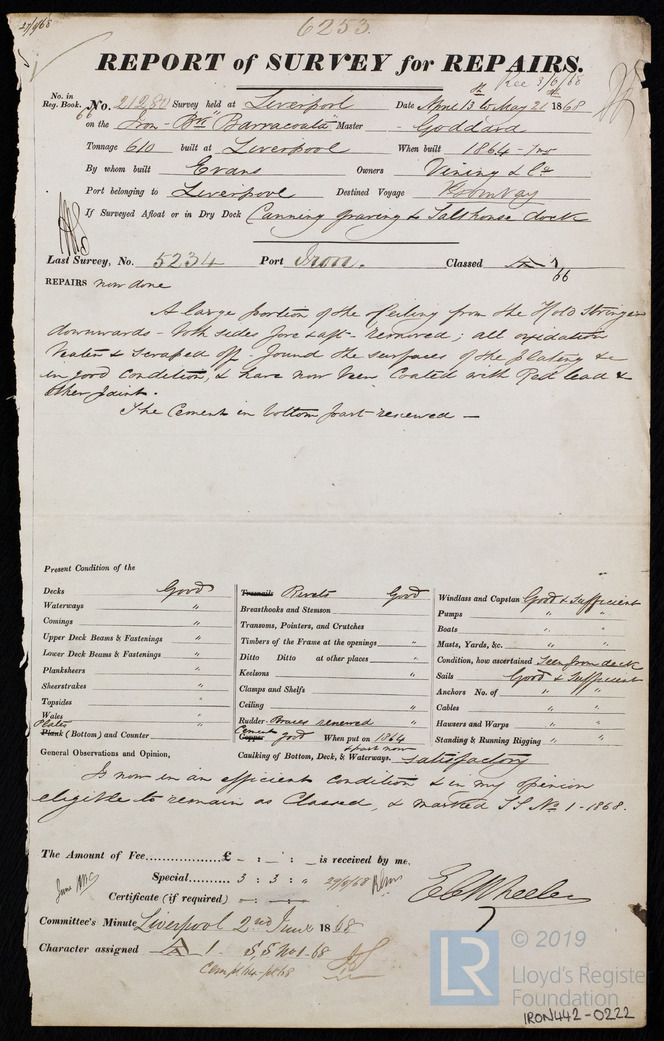 27/6/68
6253.
REPORT of SURVEY for REPAIRS.
Rec 3/6/68
No. in Reg. Book. No. 21287 Survey held at Liverpool Date April 13th to May 21st 1868
66 on the Iron Bk "Barracouta" Master Goddard
Tonnage 610 built at Liverpool When built 1864 - 7mo
By whom built Evans Owners Vining & Co
Port belonging to Liverpool Destined Voyage Bombay
If Surveyed Afloat or in Dry Dock Canning graving & Salthouse dock
Last Survey, No. 5234 Port Iron. Classed A 1
66
REPAIRS now done
A large portion of the Ceiling from the Hold Stringers
downwards - both sides fore & aft - removed; all oxidation
beaten & scraped off. found the surfaces of the plating &c
in good condition, & have now been Coated with Red lead &
other paint.
The Cement in bottom part renewed —
Present Condition of the
Decks Good
Waterways "
Comings "
Upper Deck Beams & Fastenings "
Lower Deck Beams & Fastenings "
Planksheers "
Sheerstrakes "
Topsides "
Wales "
Plates
Plank (Bottom) and Counter "
Treenails Rivets Good
Breasthooks and Stemson "
Transoms, Pointers, and Crutches
Timbers of the Frame at the openings "
Ditto Ditto at other places "
Keelsons "
Clamps and Shelfs
Ceiling "
Rudder Braces renewed "
Cement
Copper good When put on 1864
& part now
Caulking of Bottom, Deck, & Waterways. satisfactory
Windlass and Capstan Good & Sufficient
Pumps " "
Boats " "
Masts, Yards, &c. " "
Condition, how ascertained Seen from deck
Sails Good & Sufficient
Anchors No. of " "
Cables " "
Hawsers and Warps " "
Standing & Running Rigging " "
General Observations and Opinion,
Is now in an efficient condition & in my opinion
eligible to remain as Classed, & marked S S No 1 - 1868.
The Amount of Fee............... £ - : - : - is received by me,
Special.......... 3 : 3 : " 29/6/68
Certificate (if required) - : - :
E C Wheeler
Committee's Minute Liverpool 2nd June 1868
Character assigned A 1. S S No 1 - 68
© 2019
LR
Lloyd's Register
Foundation
IRON442-0222